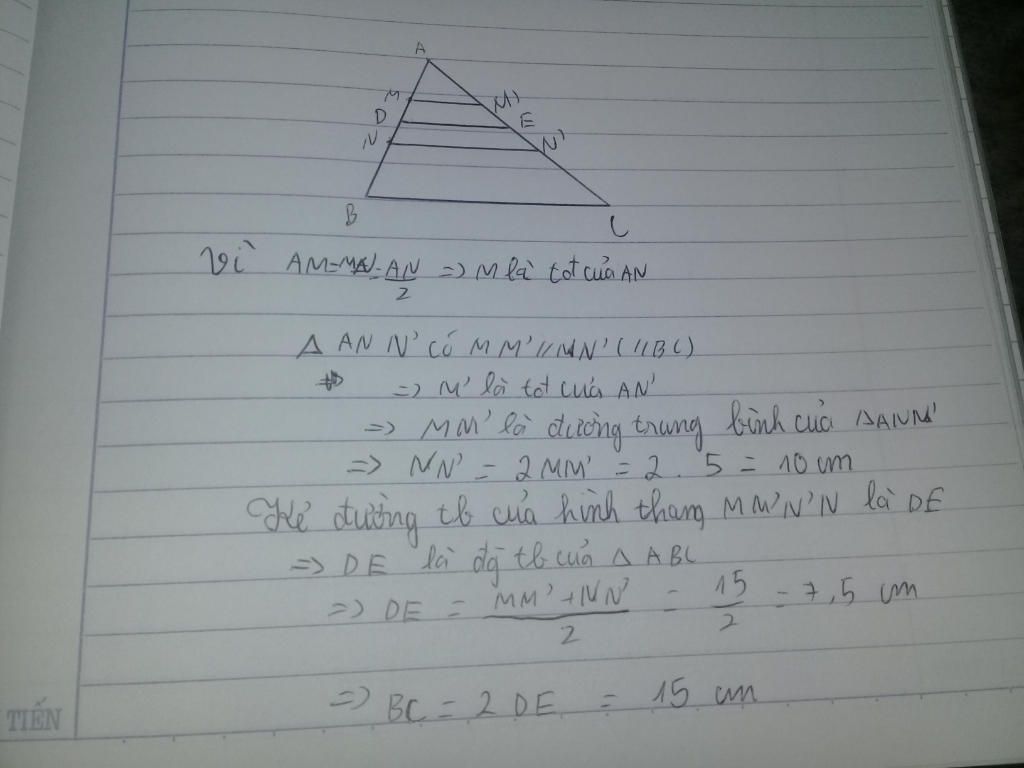 A
M M'
D E
N N'
B C
Vì AM=MN=AN/2 => M là tđ của AN
Δ AN N' có MM'//NN' (//BC)
=> M' là tđ của AN'
=> MM' là đường trung bình của ΔANN'
=> NN' = 2MM' = 2 . 5 = 10 cm
Kẻ đường tb của hình thang MM'N'N là DE
=> DE là đg tb của Δ ABC
=> DE = MM' + NN'/2 = 15/2 = 7,5 cm
=> BC = 2 DE = 15 cm
TIẾN